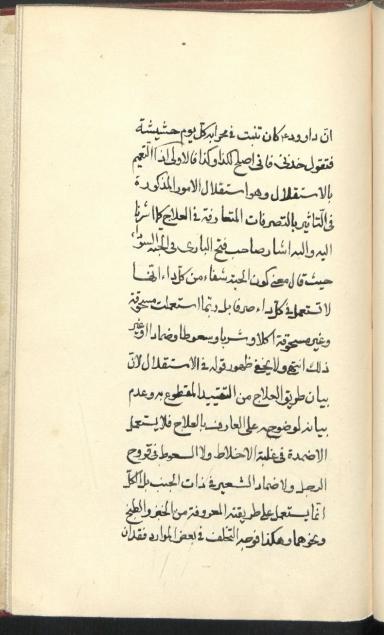 ان داود ع كان تنبت فى محرابه كل يوم حشيشة
فتقول خذنى فانى اصلح لكذا وكذا فالاولى اذا التعميم
بالاستقلال وهو استقلال الامور المذكورة
فى التاثير بالتصرفات المتعارفة فى العلاج كما اشرنا
اليه واليه اشار صاحب فتح البارى فى الحبة السوداء
حيث قال معنى كون الحبة شفاء من كل داء انها
لا تستعمل فى كل داء صرفا بل ربما استعملت مسحوقة
وغير مسحوقة اكلا وشربا وسعوطا وضمادا وغير
ذلك انتهى ولا يخفى ظهور قوله فى الاستقلال لان
بيان طريق العلاج من التقييد المقطوع به وعدم
بيانه لوضوحه على العارف بالعلاج فلا يستعمل
الاضمدة فى غلبة الاخلاط ولا السعوط فى قروح
الرجل ولا ضماد الشعير فى ذات الجنب بل الكل
انما يستعمل على طريقته المعروفة من الحفز والطبخ
ونحوهما وهكذا توجه التخلف فى بعض الموارد فقدان